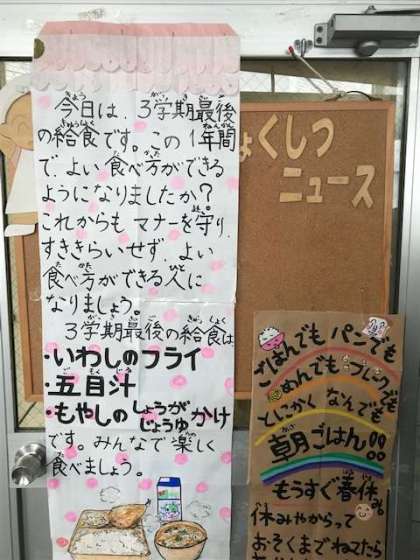 今日は、3学期最後
の給食です。この1年間
で、よい食べ方ができる
ようになりましたか？
これからもマナーを守り、
すききらいせず、よい
食べ方ができる人に
なりましょう。
3学期最後の給食は
・いわしのフライ
・五目汁
・もやしのしょうがじょうゆかけ
です。みんなで楽しく
食べましょう。
ょくしつ
ニュース
ごはんでもパンでも
めんでもフレークでも
とにかくなんでも
朝ごはん!!
もうすぐ春休
休みやからって
おそくまでねてたら